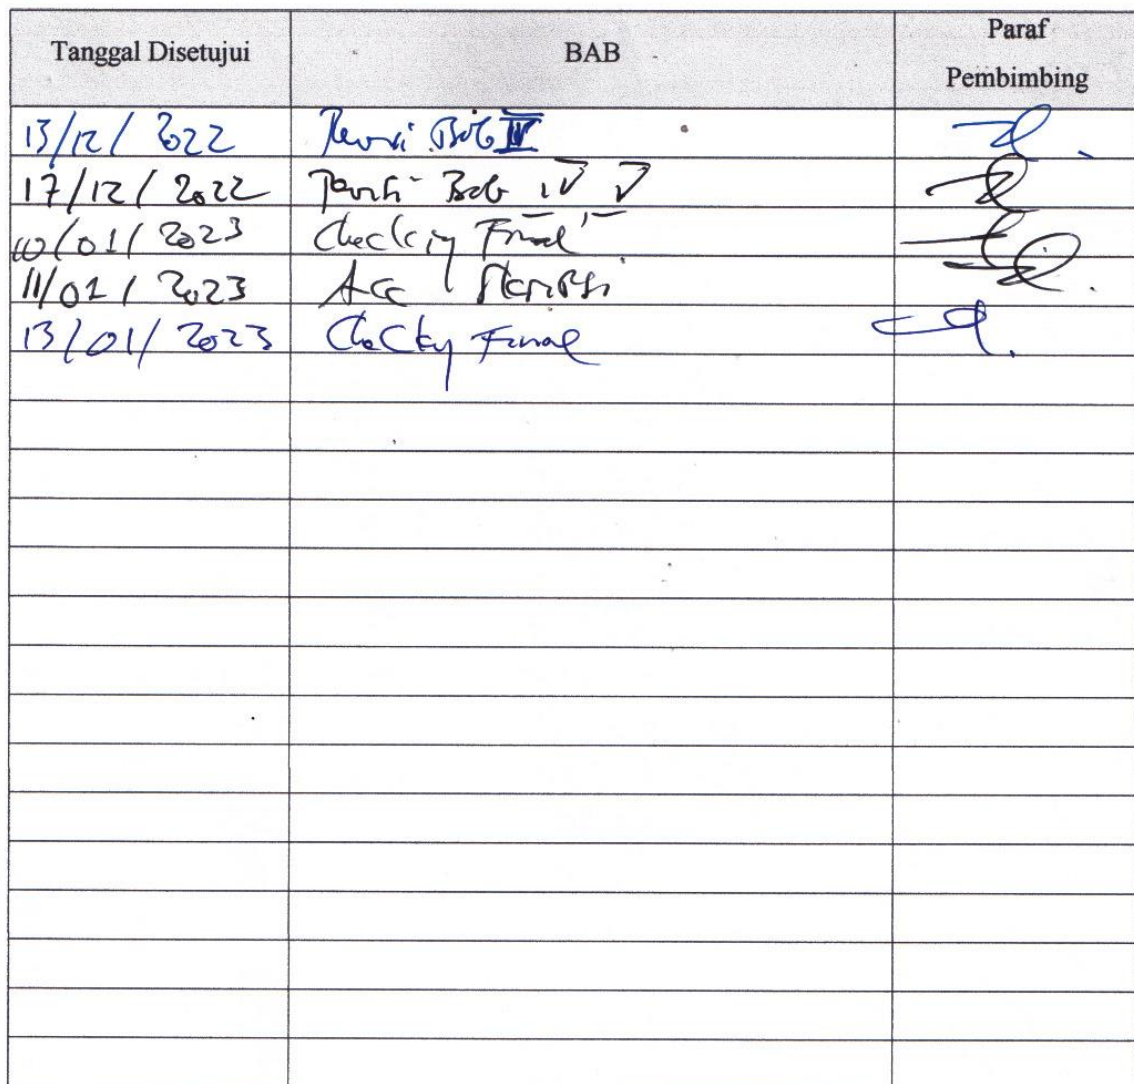 Tanggal Disetujui BAB Paraf
Pembimbing
13/12/2022 Revisi Bab IV
17/12/2022 Revisi Bab IV V
10/01/2023 Checking Final
11/01/2023 Acc Skripsi
13/01/2023 Checking Final